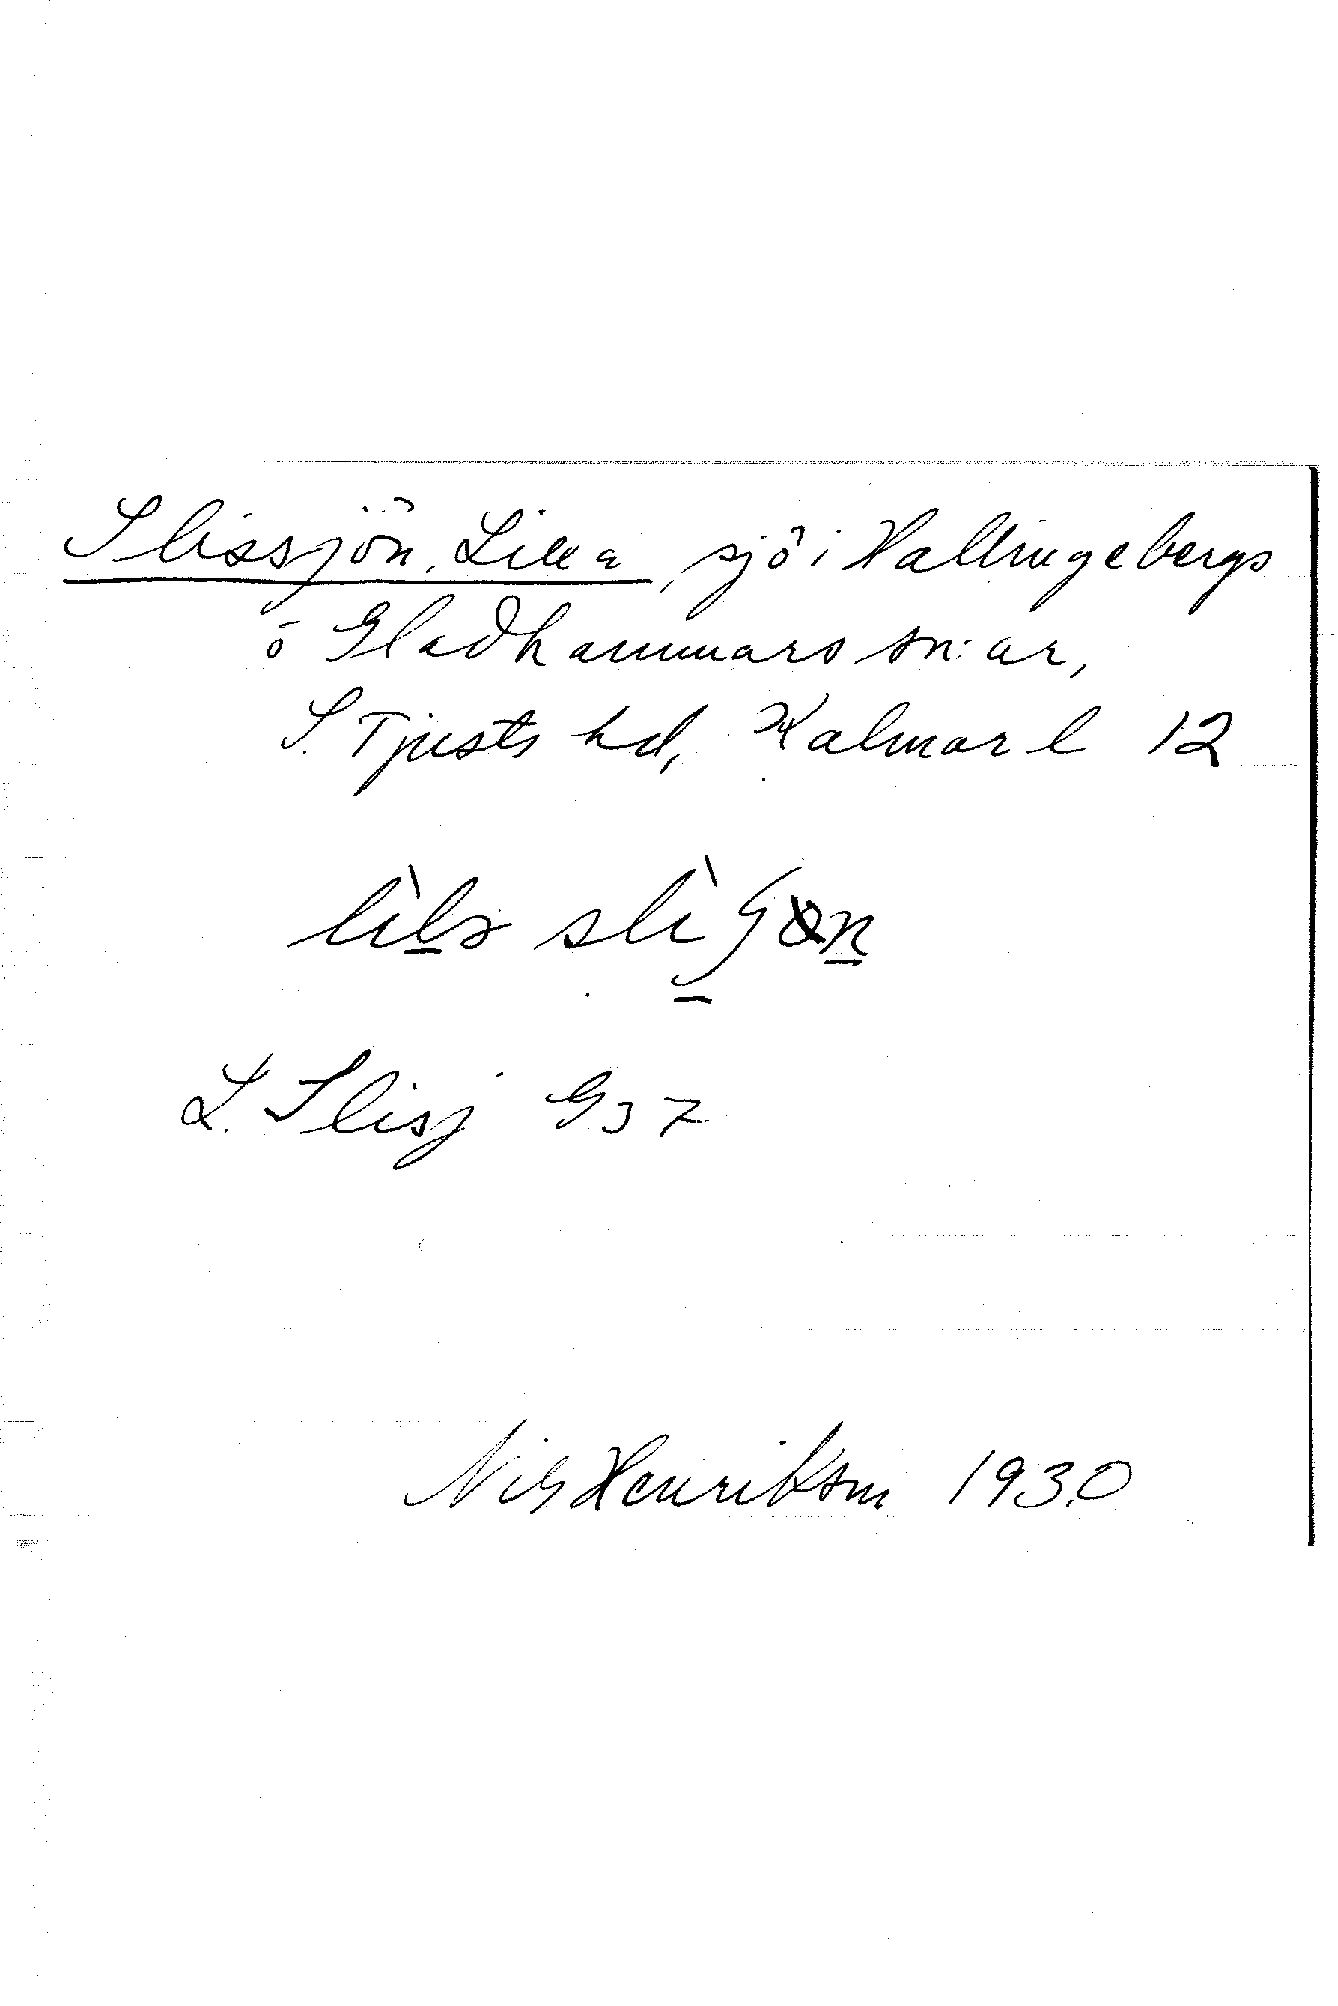 Slissjön, Lilla, sjö i Hallingebergs
o Gladhammars sn:ar,
S. Tjusts hd, Kalmar l 12
lìlə slìʃən
L. Slisj G 37
Nils Henrikson 1930